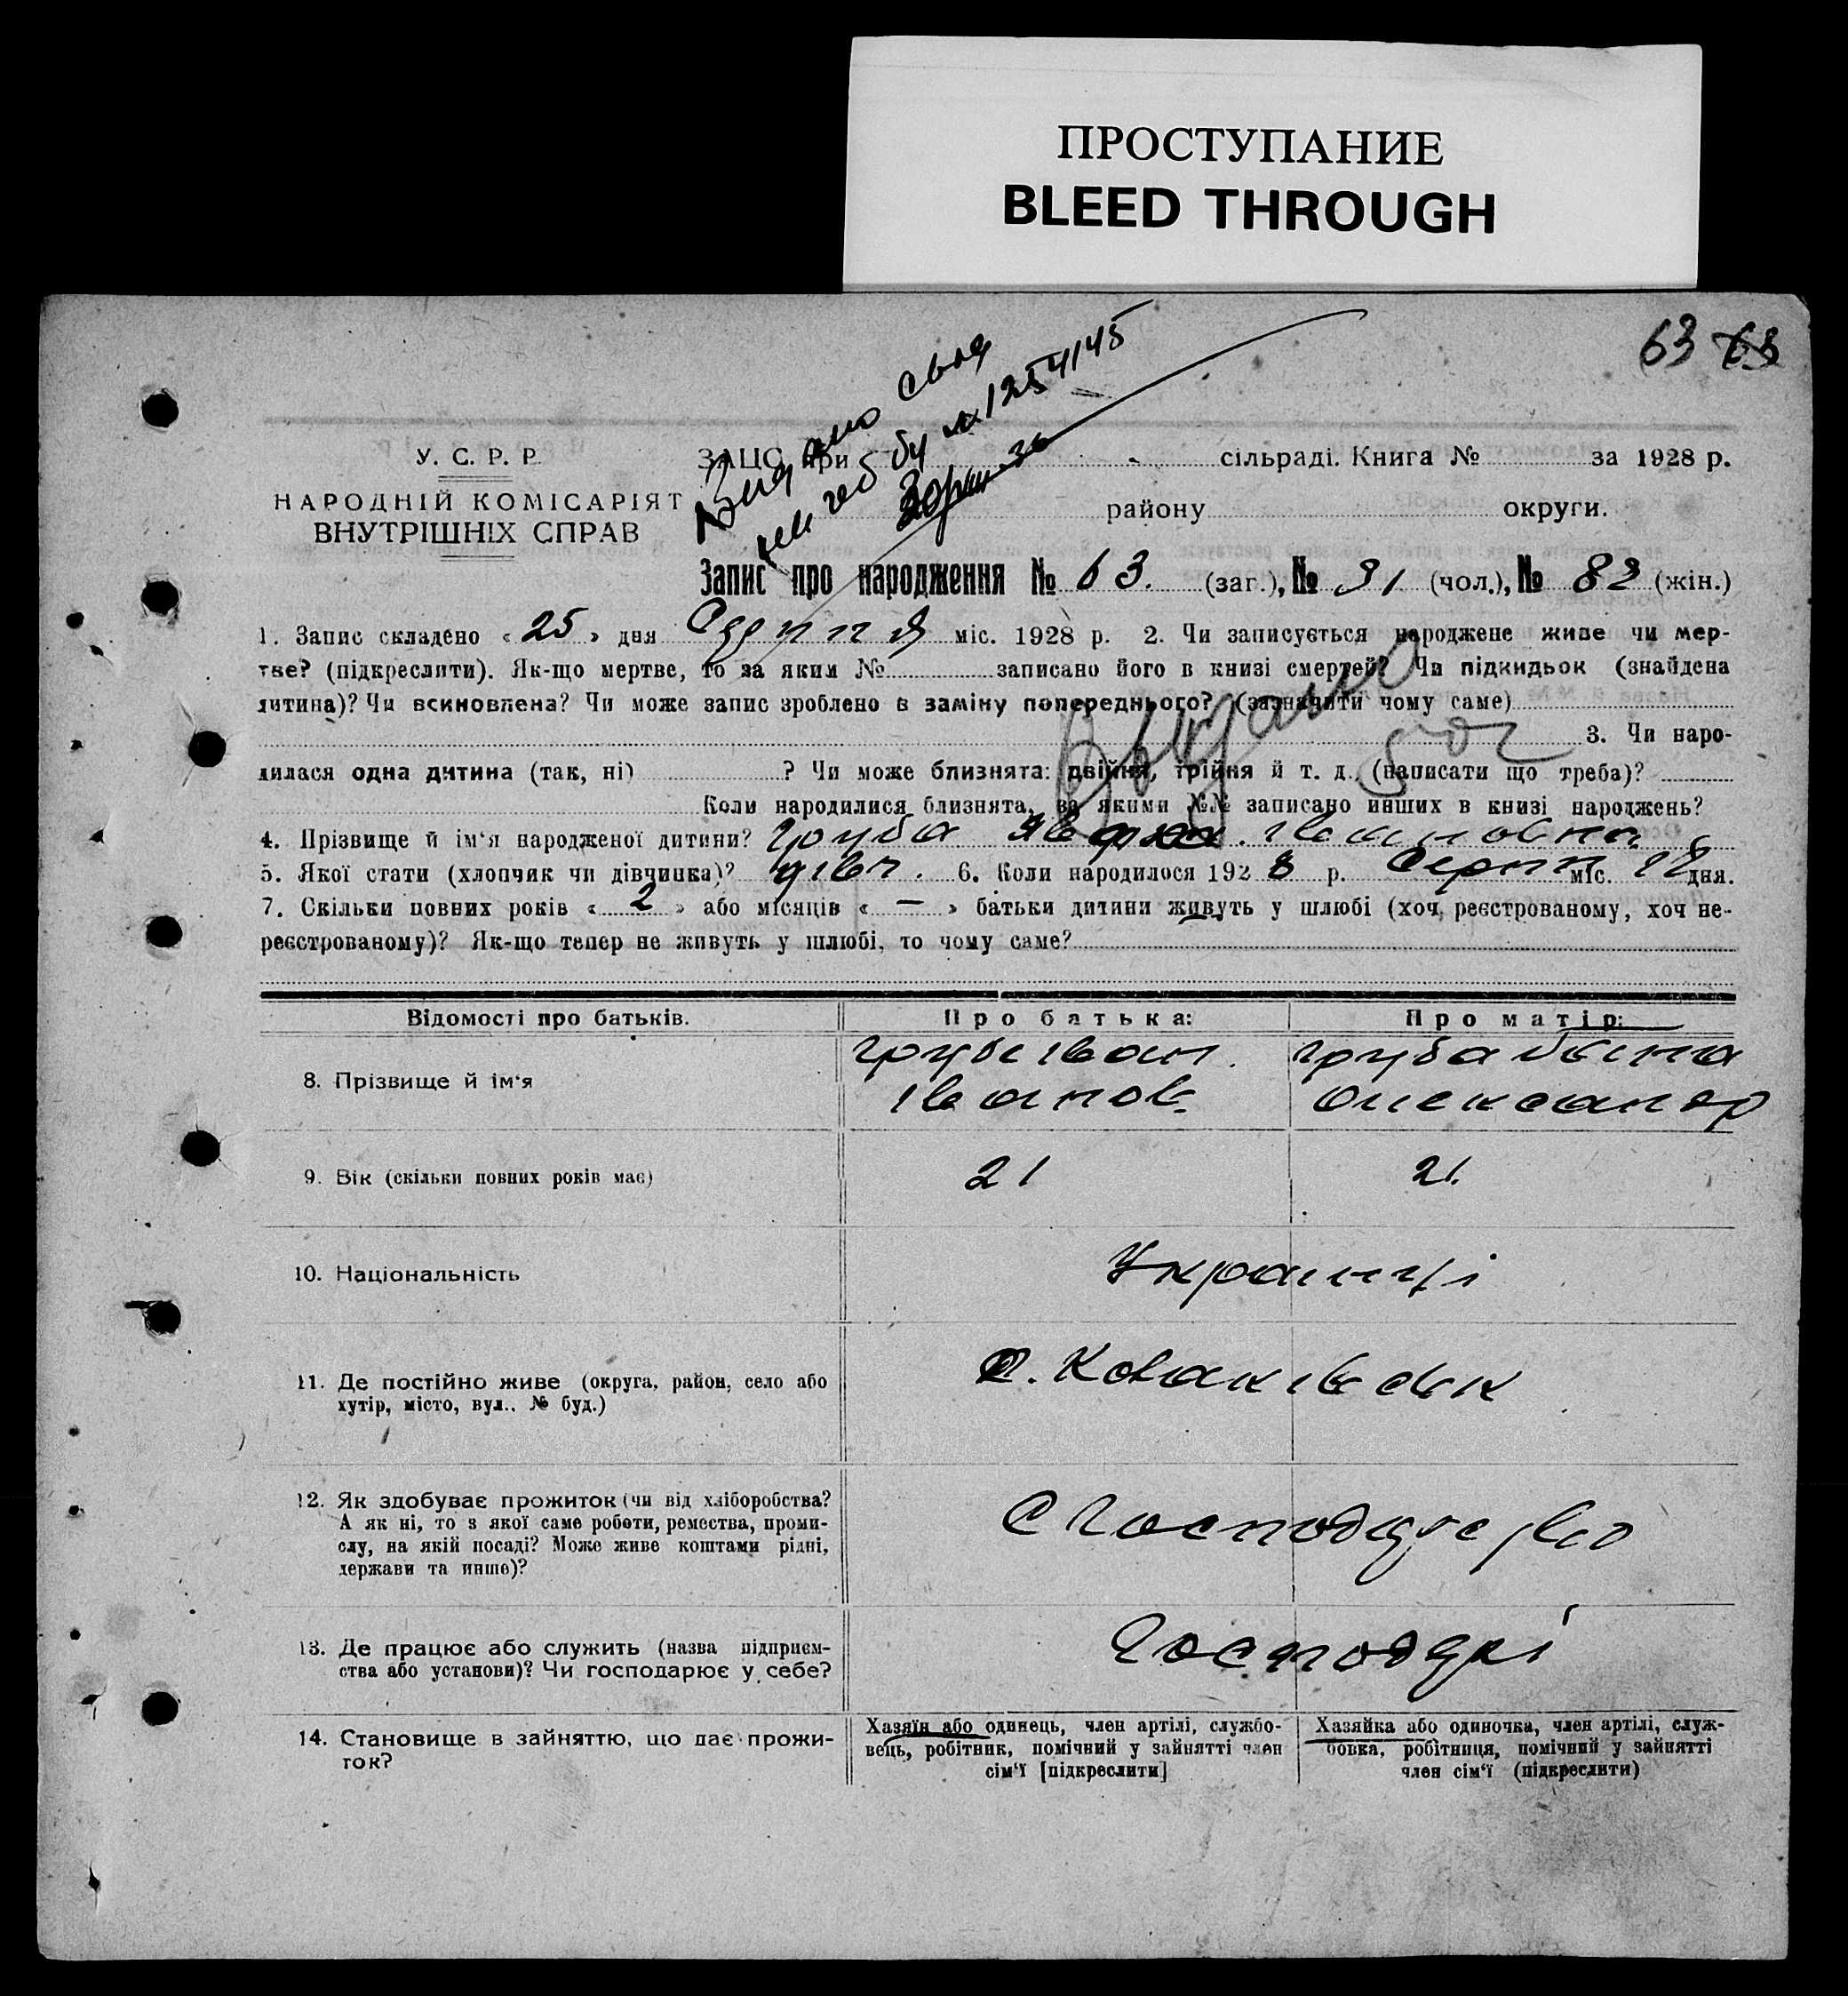 ПРОСТУПАНИЕ
BLEED THROUGH
63 63
Видано свид
1254145
У. С. Р. Р.
НАРОДНІЙ КОМІСАРІЯТ
ВНУТРІШНІХ СПРАВ
ЗАЦС при сільраді. Книга № за 1928 р.
району округи.
Запис про народження № 63. (заг.), № 31 (чол.), № (жін.)
1. Запис складено « 25 » дня Серпня міс. 1928 р. 2. Чи записується народжене живе чи мер-
тве? (підкреслити). Як-що мертве, то за яким № записано його в книзі смертей? Чи підкидьок (знайдена
дитина)? Чи всиновлена? Чи може запис зроблено в заміну попереднього? (зазначити чому саме)
3. Чи наро-
дилася одна дитина (так, ні) ? Чи може близнята: двійня, трійня й т. д. (написати що треба)?
Коли народилися близнята, за якими №№ записано инших в книзі народжень?
4. Прізвище й ім‘я народженої дитини? Груба Івановна
5. Якої стати (хлопчик чи дівчинка)? дівч. 6. Коли народилося 1928 р. Серпн міс. 18 дня.
7. Скільки повних років « 2 » або місяців « — » батьки дитини живуть у шлюбі (хоч реєстрованому, хоч не-
реєстрованому)? Як-що тепер не живуть у шлюбі, то чому саме?
Відомості про батьків. Про батька: Про матір:
8. Прізвище й ім‘я
Груба Іван. Іванов.
Груба Олександр
9. Вік (скільки повних років має) 21 21.
10. Національність Українці
11. Де постійно живе (округа, район, село або
хутір, місто, вул.. № буд.)
12. Як здобуває прожиток (чи від хліборобства?
А як ні, то з якої саме роботи, ремества, проми-
слу, на якій посаді? Може живе коштами рідні,
держави та инше)?
13. Де працює або служить (назва підприєм-
ства або установи)? Чи господарює у себе?
Господарі
14. Становище в зайняттю, що дає прожи-
ток?
Хазяїн або одинець, член артілі, службо-
вець, робітник, помічний у зайнятті член
сім‘ї [підкреслити]
Хазяйка або одиночка, член артілі, служ-
бовка, робітниця, помічний у зайнятті
член сім‘ї (підкреслити)